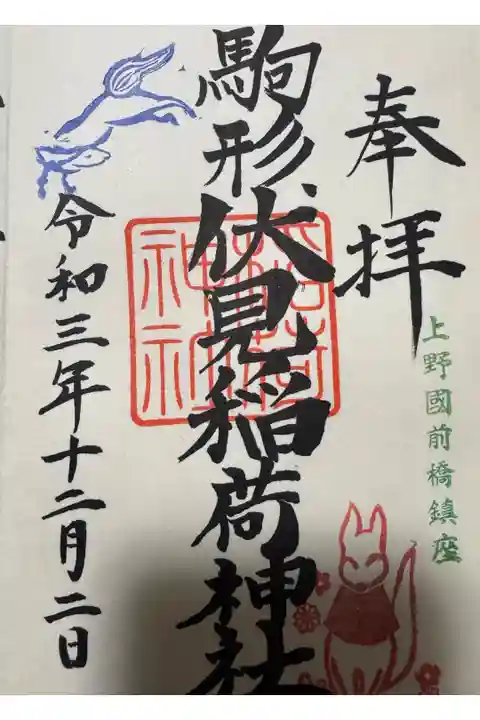 奉拝
上野國前橋鎮座
駒形伏見稲荷神社
令和三年十二月二日